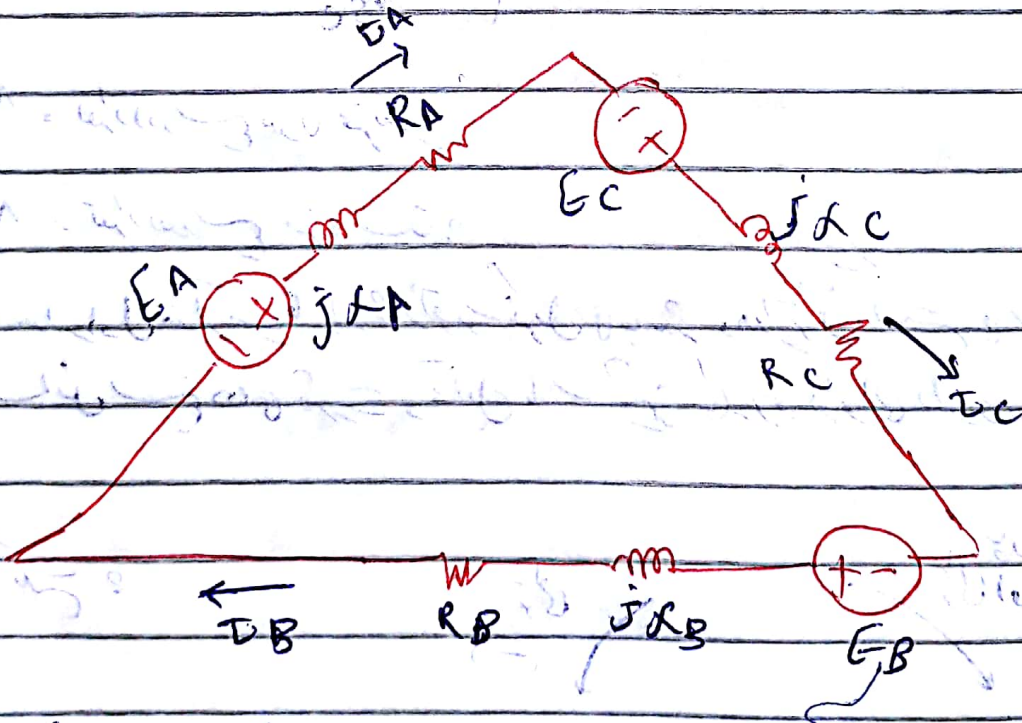 IA
RA
- +
EC
jXC
EA
+ -
jXA
RC
IC
+ -
IB
RB
jXB
EB